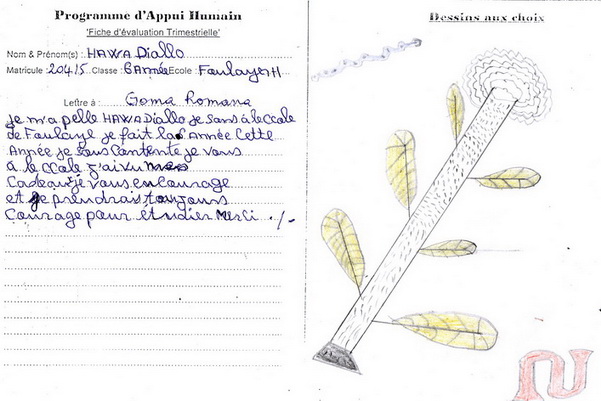 Programme d'Appui Humain
'Fiche d'évaluation Trimestrielle'
Nom & Prénom(s) : HAWA Diallo
Matricule 20415 Classe : 6Année Ecole : Foulaye H
Lettre à : Goma Romana
Je m'a pelle HAWA Diallo je sans à le Ecole
de Foulaye je fait la 6 Année Cette
Année je sous Contente je vous
à le Ecole j'ai vu mes
Cadeau je vous en courage
et je prendrais toujours
Courage pour étudier Merci ./-
Dessins aux choix